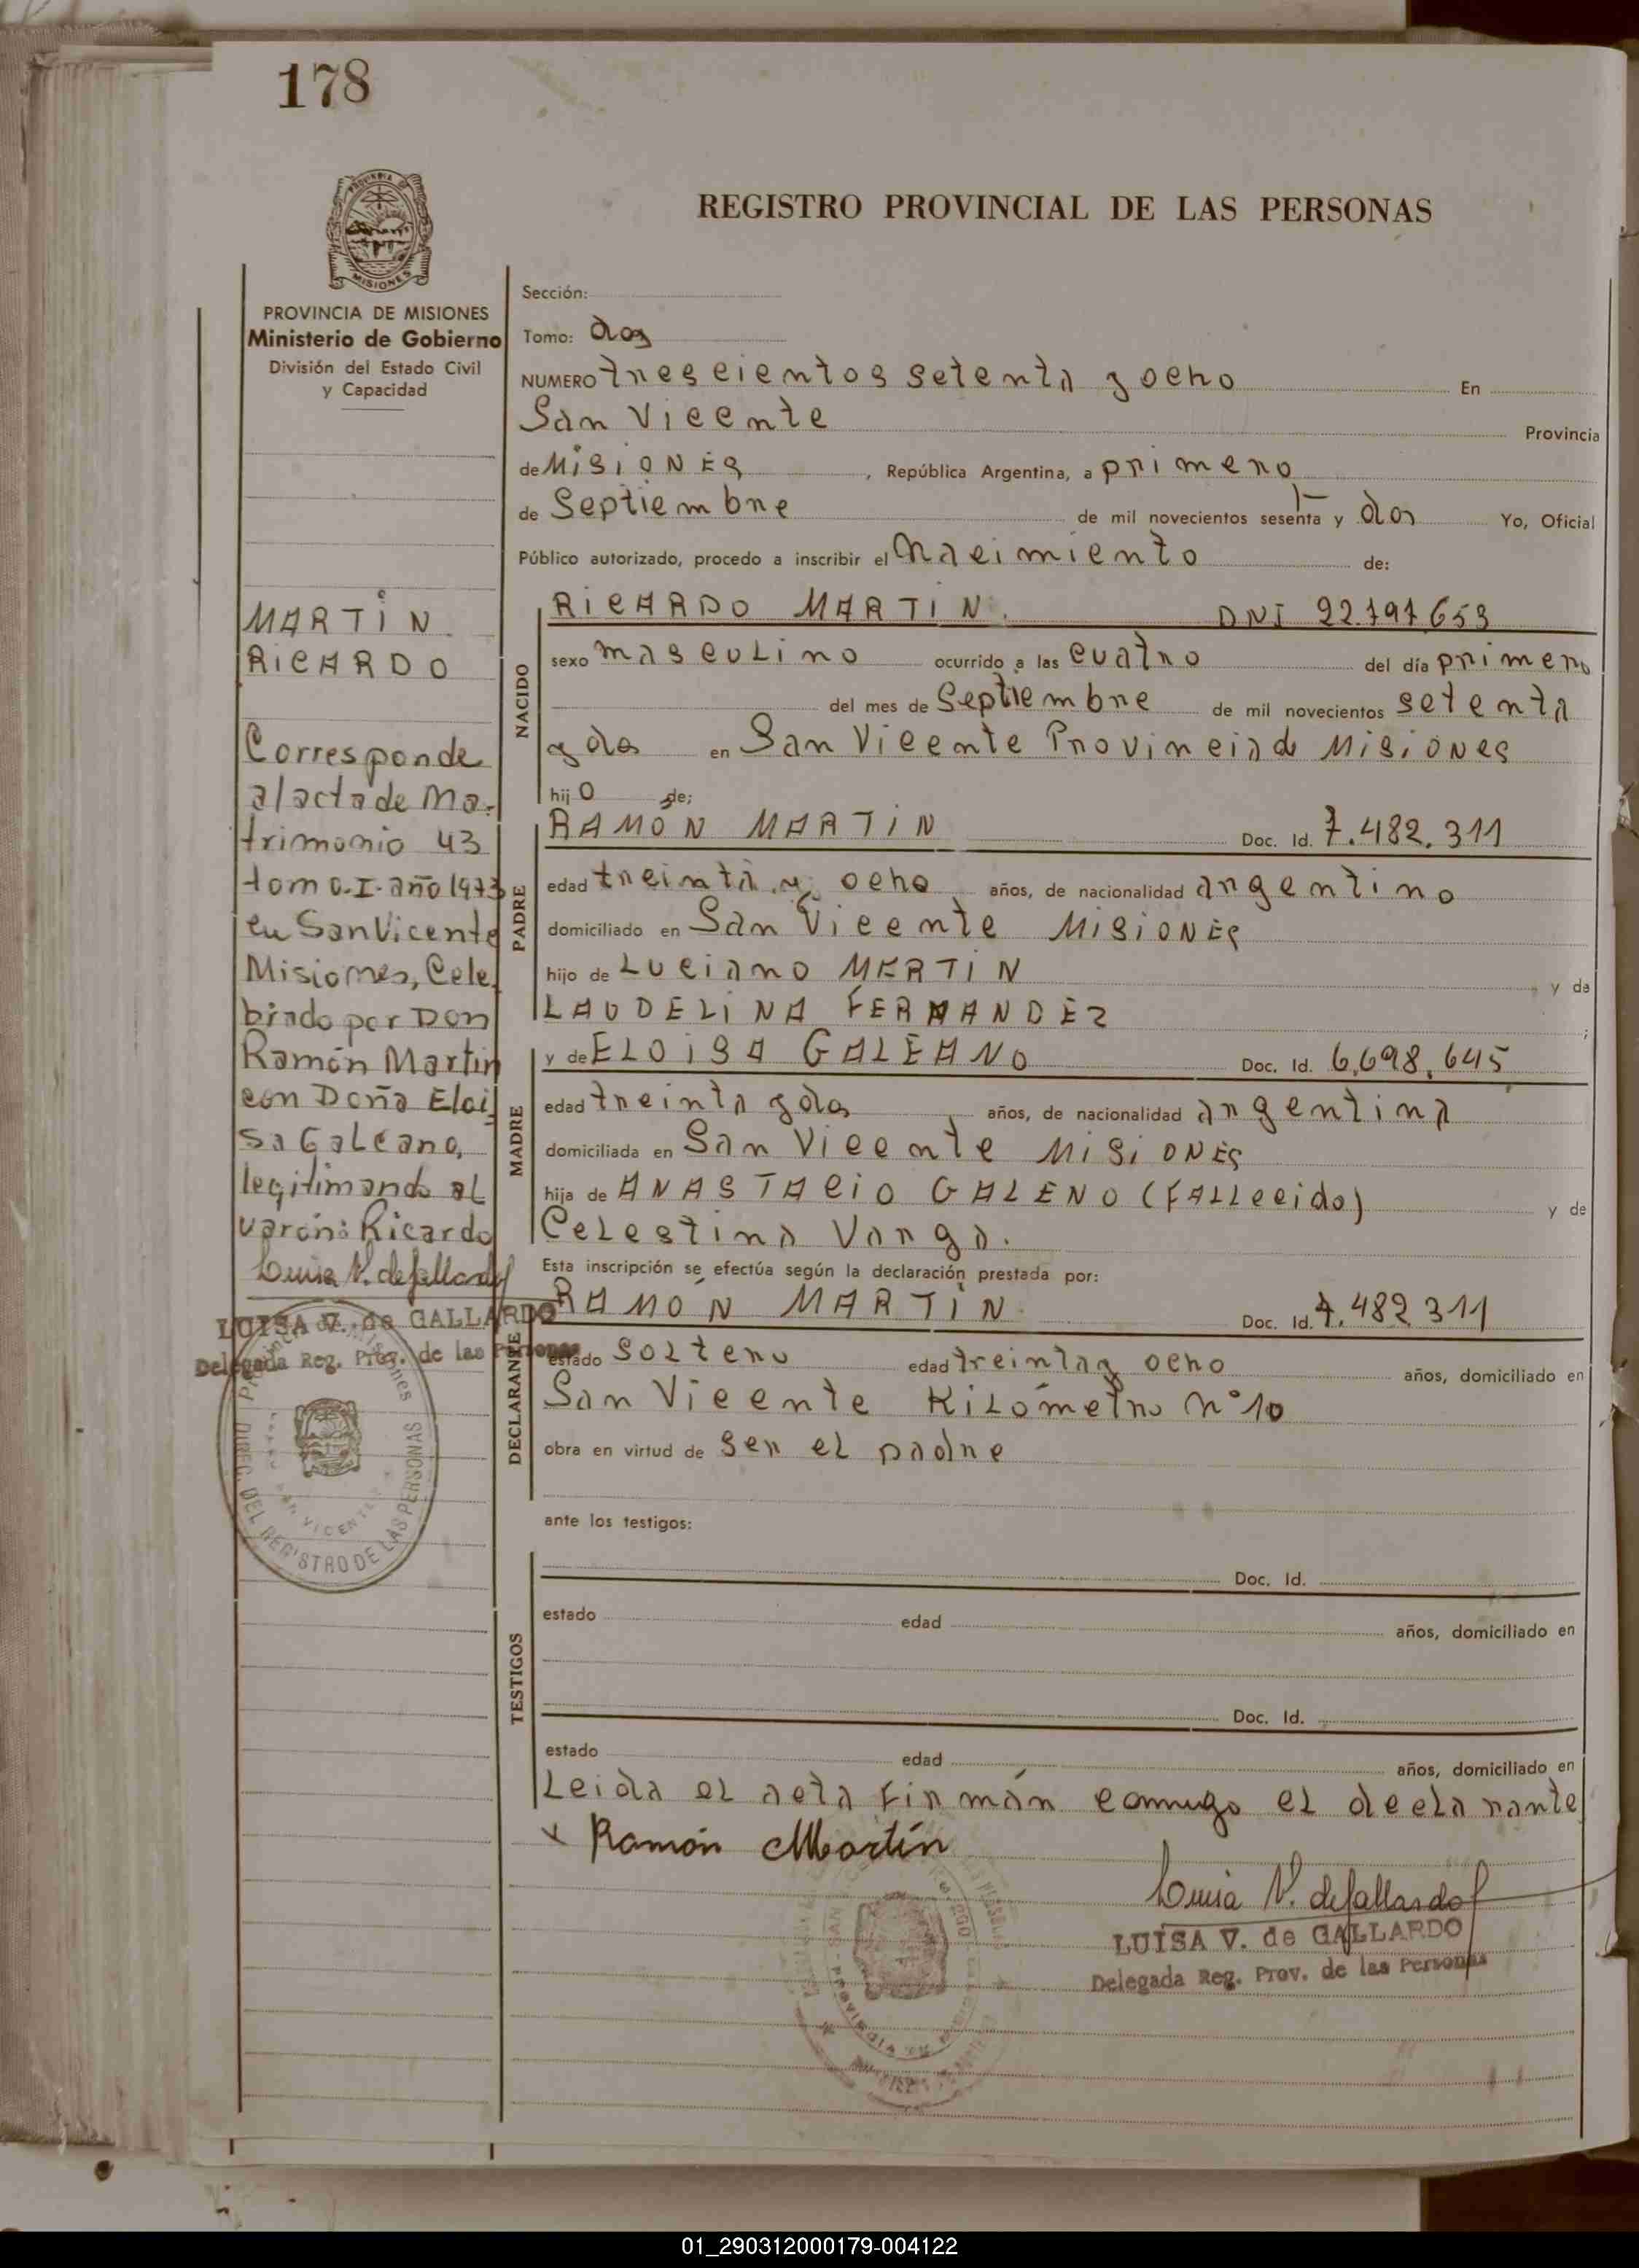 178
PROVINCIA DE MISIONES
Ministerio de Gobierno
División del Estado Civil
y Capacidad
MARTIN
RICARDO
Corresponde
al acta de Ma-
trimonio 43
tomo.I.año 1973
en San Vicente
Misiones, Cele-
brado por Don
Ramón Martin
con Doña Eloi-
sa Galeano,
legitimando al
varón: Ricardo
Luisa V. de Gallardo
LUISA V. de GALLARDO
Delegada Reg. Prov. de las Personas
DIREC. DEL REGISTRO DE LAS PERSONAS
SAN VICENTE
REGISTRO PROVINCIAL DE LAS PERSONAS
Sección:
Tomo: dos
NUMERO trescientos setenta y ocho En
San Vicente Provincia
de MISIONES, República Argentina, a primero
de Septiembre de mil novecientos sesenta y dos Yo, Oficial
Público autorizado, procedo a inscribir el Nacimiento de:
NACIDO
RICARDO MARTIN. DNI 22.797.653
sexo masculino ocurrido a las cuatro del día primero
del mes de Septiembre de mil novecientos setenta
y dos en San Vicente Provincia de MISIONES
hijo de;
PADRE
RAMÓN MARTIN Doc. Id. 7.482.311
edad treinta y ocho años, de nacionalidad argentino
domiciliado en San Vicente MISIONES
hijo de Luciano MARTIN y de
LAUDELINA FERNANDEZ ;
MADRE
y de ELOISA GALEANO Doc. Id. 6.698.645
edad treinta y dos años, de nacionalidad argentina
domiciliada en San Vicente MISIONES
hija de ANASTACIO GALENO (FALLecido) y de
Celestina Varga.
Esta inscripción se efectúa según la declaración prestada por:
DECLARANTE
RAMÓN MARTIN Doc. Id. 7.482.311
estado solteno edad treinta y ocho años, domiciliado en
San Vicente Kilómetro N°10
obra en virtud de ser el padre
ante los testigos:
TESTIGOS
Doc. Id.
estado edad años, domiciliado en
Doc. Id.
estado edad años, domiciliado en
Leida el acta firmán conmigo el declarante
x Ramón Martín
Luisa V. de Gallardo
LUISA V. de GALLARDO
Delegada Reg. Prov. de las Personas
01_290312000179-004122